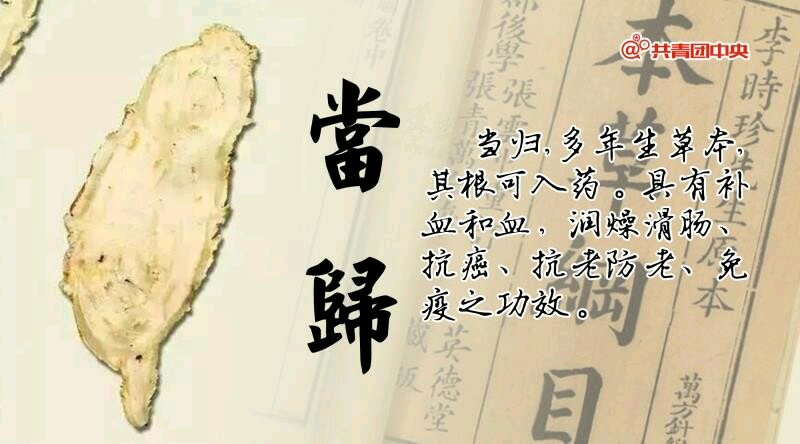 @共青团中央
當歸
当归，多年生草本，
其根可入药。具有补
血和血，润燥滑肠、
抗癌、抗老防老、免
疫之功效。
李時珍先生原本
本草綱目
萬方針線
張青萬
英德堂
藏板